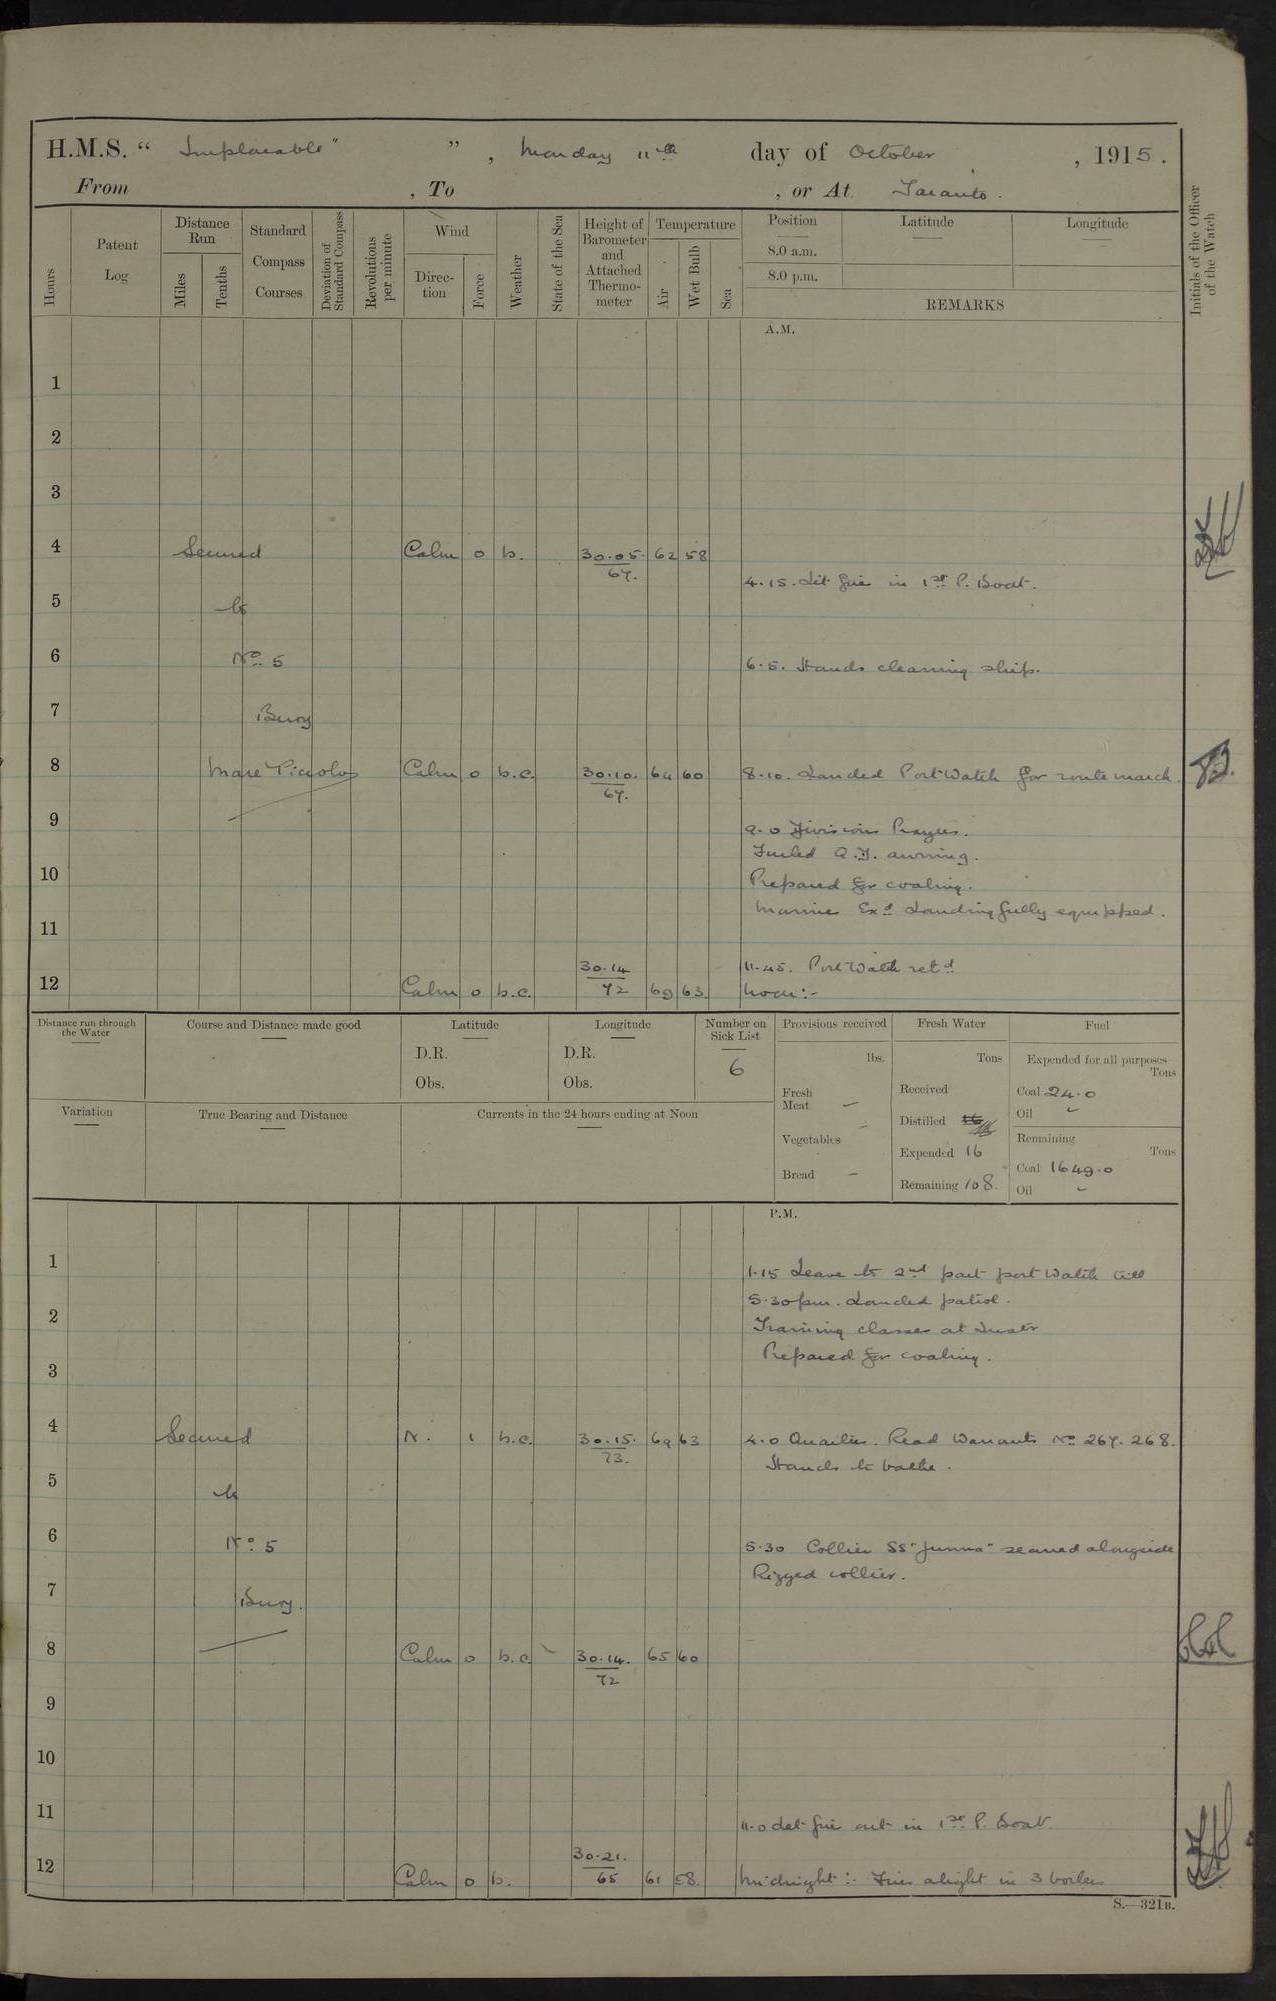 H.M.S. “ Implacable” ” , Monday 11th day of October , 1915.
From , To , or At Taranto.
Hours
Patent Log
Distance Run
Miles
Tenths
Standard Compass Courses
Deviation of Standard Compass
Revolutions per minute
Wind
Direc-tion
Force
Weather
State of the Sea
Height of Barometer and Attached Thermo-meter
Temperature
Air
Wet Bulb
Sea
Position
Latitude
Longitude
8.0 a.m.
8.0 p.m.
REMARKS
Initials of the Officer of the Watch
A.M.
1
2
3
4 Secured Calm 0 b. 30.05. 62 58
67.
4.15. Lit fire in 1st P. Boat.
5 to
6 No 5 6.5. Hands cleaning ship.
7 Buoy
8 Mare Piccolo Calm 0 b.c. 30.10. 64 60 8.10. Landed Port Watch for route march.
67.
9 9.0 Divisions Prayers.
Furled Q.D. awning.
10 Prepared for coaling.
Marines Exd Landing fully equipped.
11
30.14 11.45. Port Watch retd
12 Calm 0 b.c. 72 69 63. Noon:-
Distance run through the Water
Course and Distance made good
Latitude
D.R.
Obs.
Longitude
D.R.
Obs.
Number on Sick List
6
Variation
True Bearing and Distance
Currents in the 24 hours ending at Noon
Provisions received
lbs.
Fresh Meat —
Vegetables -
Bread -
Fresh Water
Tons
Received
Distilled 16
Expended 16
Remaining 108.
Fuel
Expended for all purposes
Tons
Coal 24.0
Oil -
Remaining
Tons
Coal 1649.0
Oil -
P.M.
1 1.15 Leave to 2nd part port Watch till
5.30 pm. Landed patrol.
2 Training classes at Instr
Prepared for coaling.
3
4 Secured N. 1 b.c. 30.15. 69 63 4.0 Quarters. Read Warrants No 267. 268.
73.
Hands to bathe.
5 to
6 No 5 5.30 Collier SS "Junna" secured alongside
Rigged collier.
7 Buoy.
8 Calm 0 b.c. 30.14. 65 60
72
9
10
11 11.0 Let fire out in 1st P. Boat.
30.21.
12 Calm 0 b. 65 61 58. Midnight:- Fires alight in 3 boilers
S.—321B.